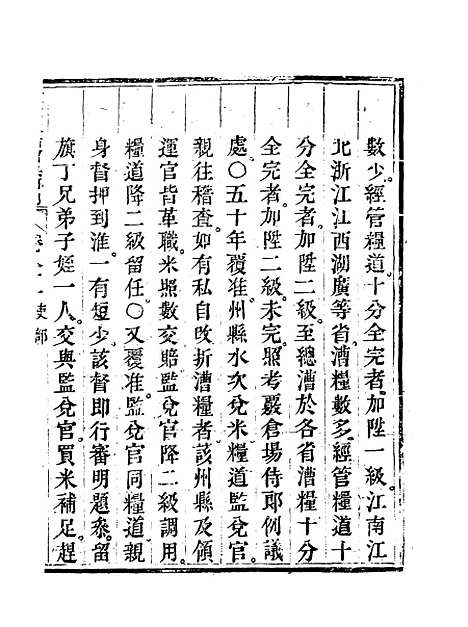 數少。經管糧道。十分全完者。加陞一級。江南江
北浙江江西湖廣等省漕糧數多。經管糧道十
分全完者。加陞二級。至總漕於各省漕糧十分
全完者。加陞二級。未完。照考覈倉場侍郎例議
處。〇五十年覆准。州縣水次兌米。糧道監兌官。
親往稽查。如有私自改折漕糧者。該州縣及領
運官皆革職。米照數交賠。監兌官降二級調用。
糧道降二級留任。〇又覆准。監兌官同糧道親
身督押到淮。一有短少。該督即行審明題叅。留
旗丁兄弟子姪一人。交與監兌官。買米補足。趕
吏部